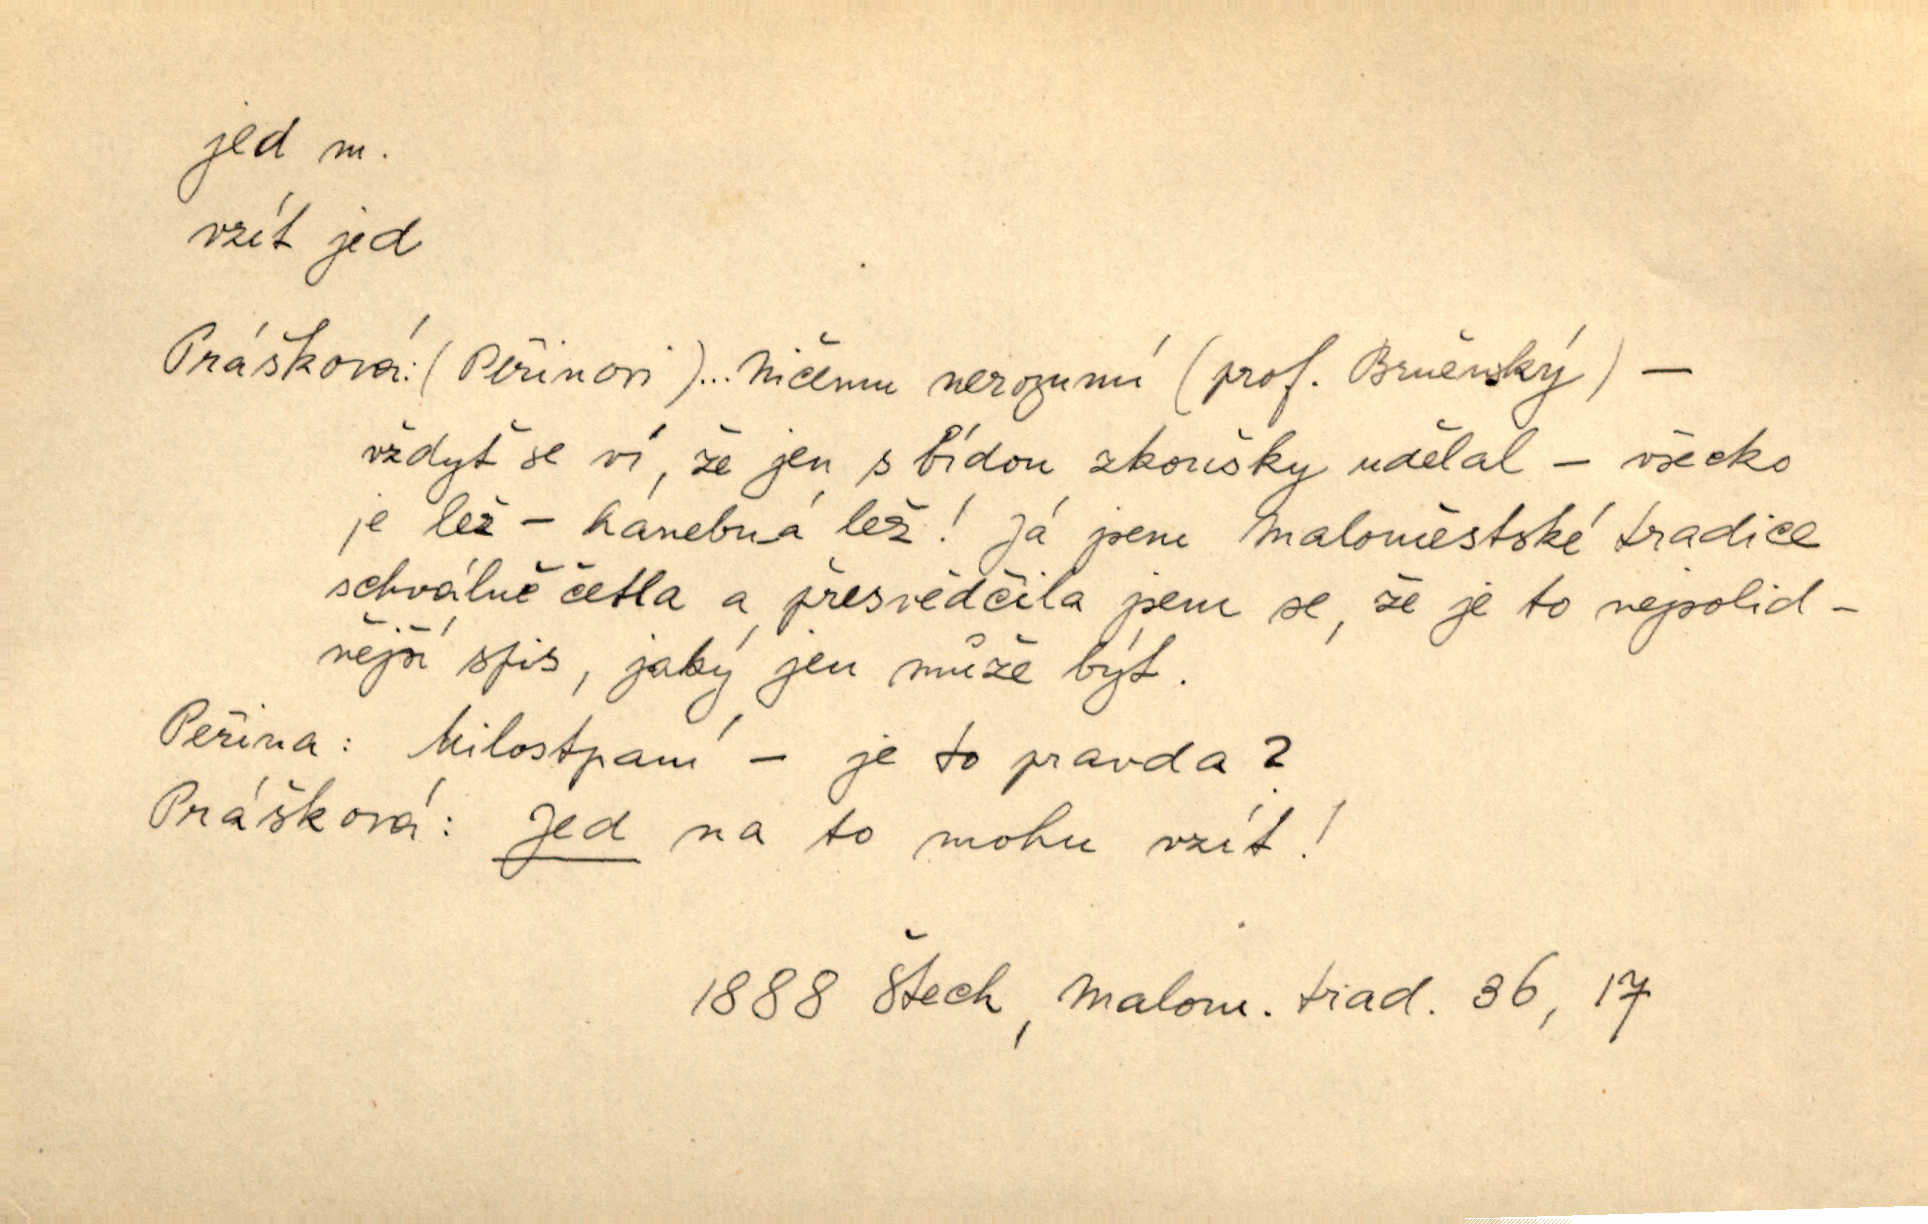 jed m.
vzít jed
Prášková: (Peřinovi)... Ničemu nerozumí (prof. Brněnský) —
vždyť se ví, že jen s bídou zkoušky udělal — všecko
je lež — hanebná lež! Já jsem Maloměstské tradice
schválně četla a přesvědčila jsem se, že je to nejsolid-
nější spis, jaký jen může být.
Peřina: Milostpaní — je to pravda?
Prášková: Jed na to mohu vzít!
1888 Štech, Malom. trad. 36, 17